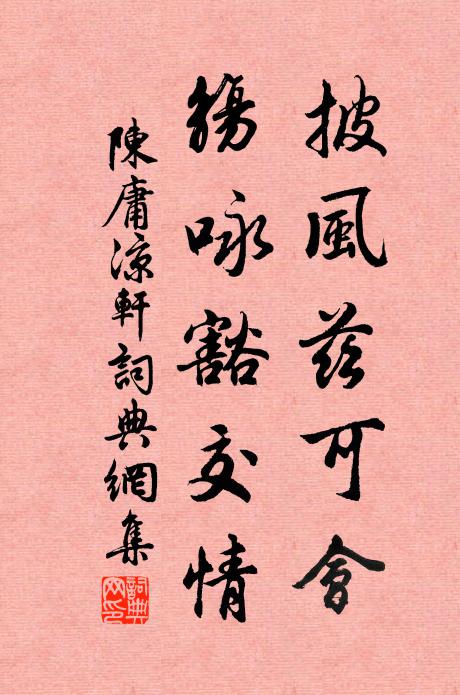 披風茲可會
觴咏豁交情
陳庸涼軒詞典網集
詞典網印